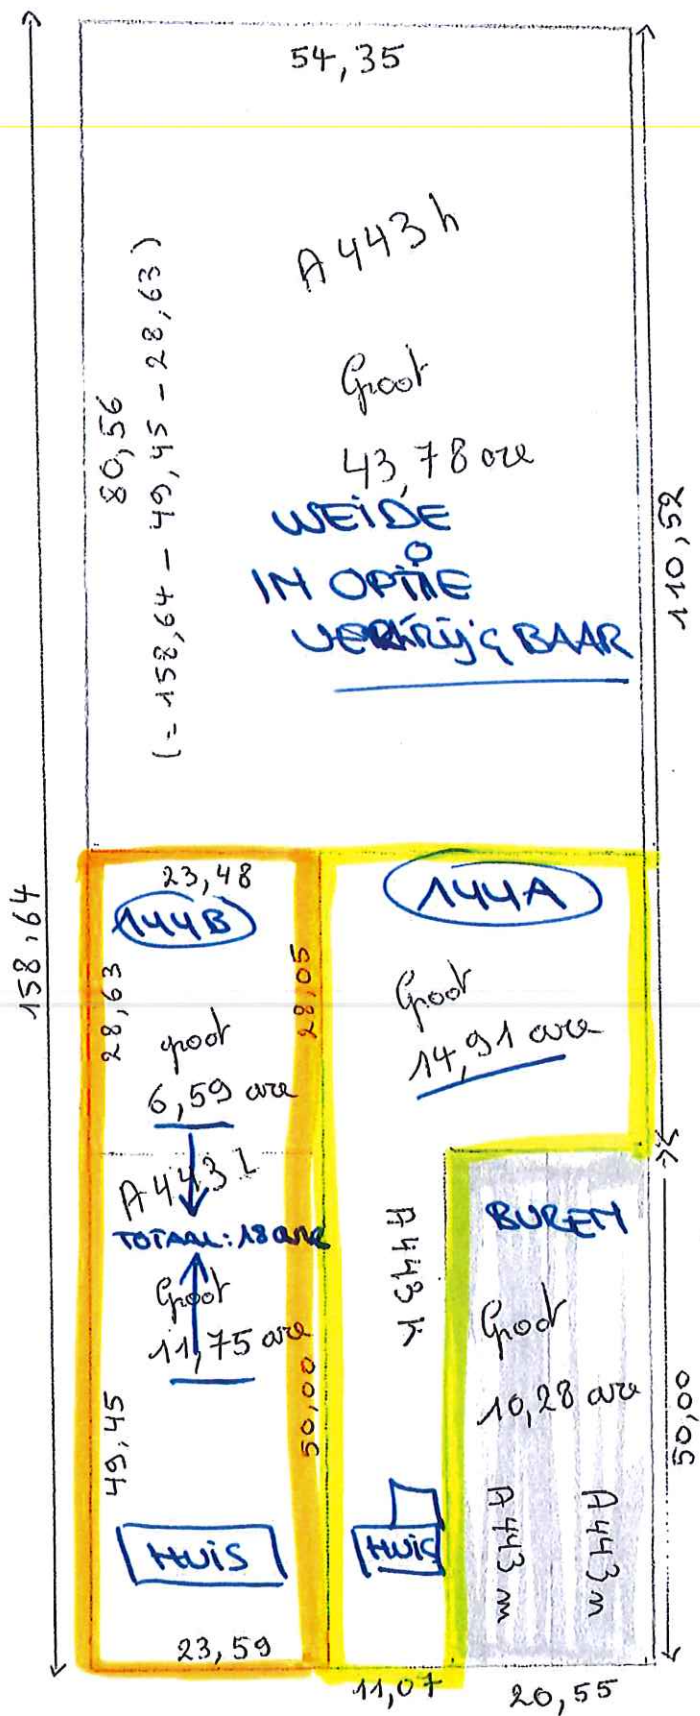 54,35
A 443 h
Groot
43,78 are
80,56
(= 158,64 - 49,45 - 28,63)
WEIDE
IN OPTIE
VERKRIJGBAAR
110,52
158,64
23,48
144B
28,63
28,05
groot
6,59 are
A 443 l
TOTAAL: 18 are
Groot
11,75 are
49,45
50,00
HUIS
23,59
144A
Groot
14,91 are
A 443 K
HUIS
11,07
BUREN
Groot
10,28 are
A 443 m
A 443 n
50,00
20,55